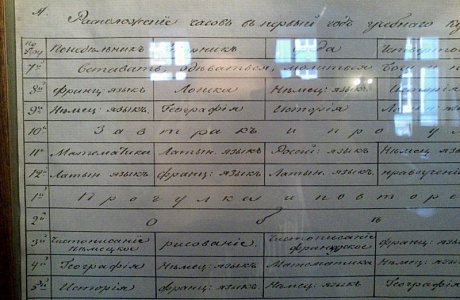 Расположение часовъ въ первый годъ учебнаго
Понедѣльникъ Вторникъ Среда Четвертокъ
7й Вставать, одѣваться, молиться Богу и
8й Франц: языкъ Логика Нѣмец: языкъ Исторія
9й Нѣмец: языкъ Географія Исторія
10й Завтракъ и прогу
11й Математика Латын: языкъ Россій: языкъ Нѣмец: языкъ
12й Латын: языкъ Франц: языкъ Латын: языкъ нравоученіе
1й Прогулка и повторе
2й О б ъ
3й Чистописаніе нѣмецкое рисованіе. Чистописаніе французское Франц: язы
4й Географія Нѣмец: языкъ Математика Нѣмец: язы
5й Исторія Франц: языкъ Нѣмец: языкъ Географія